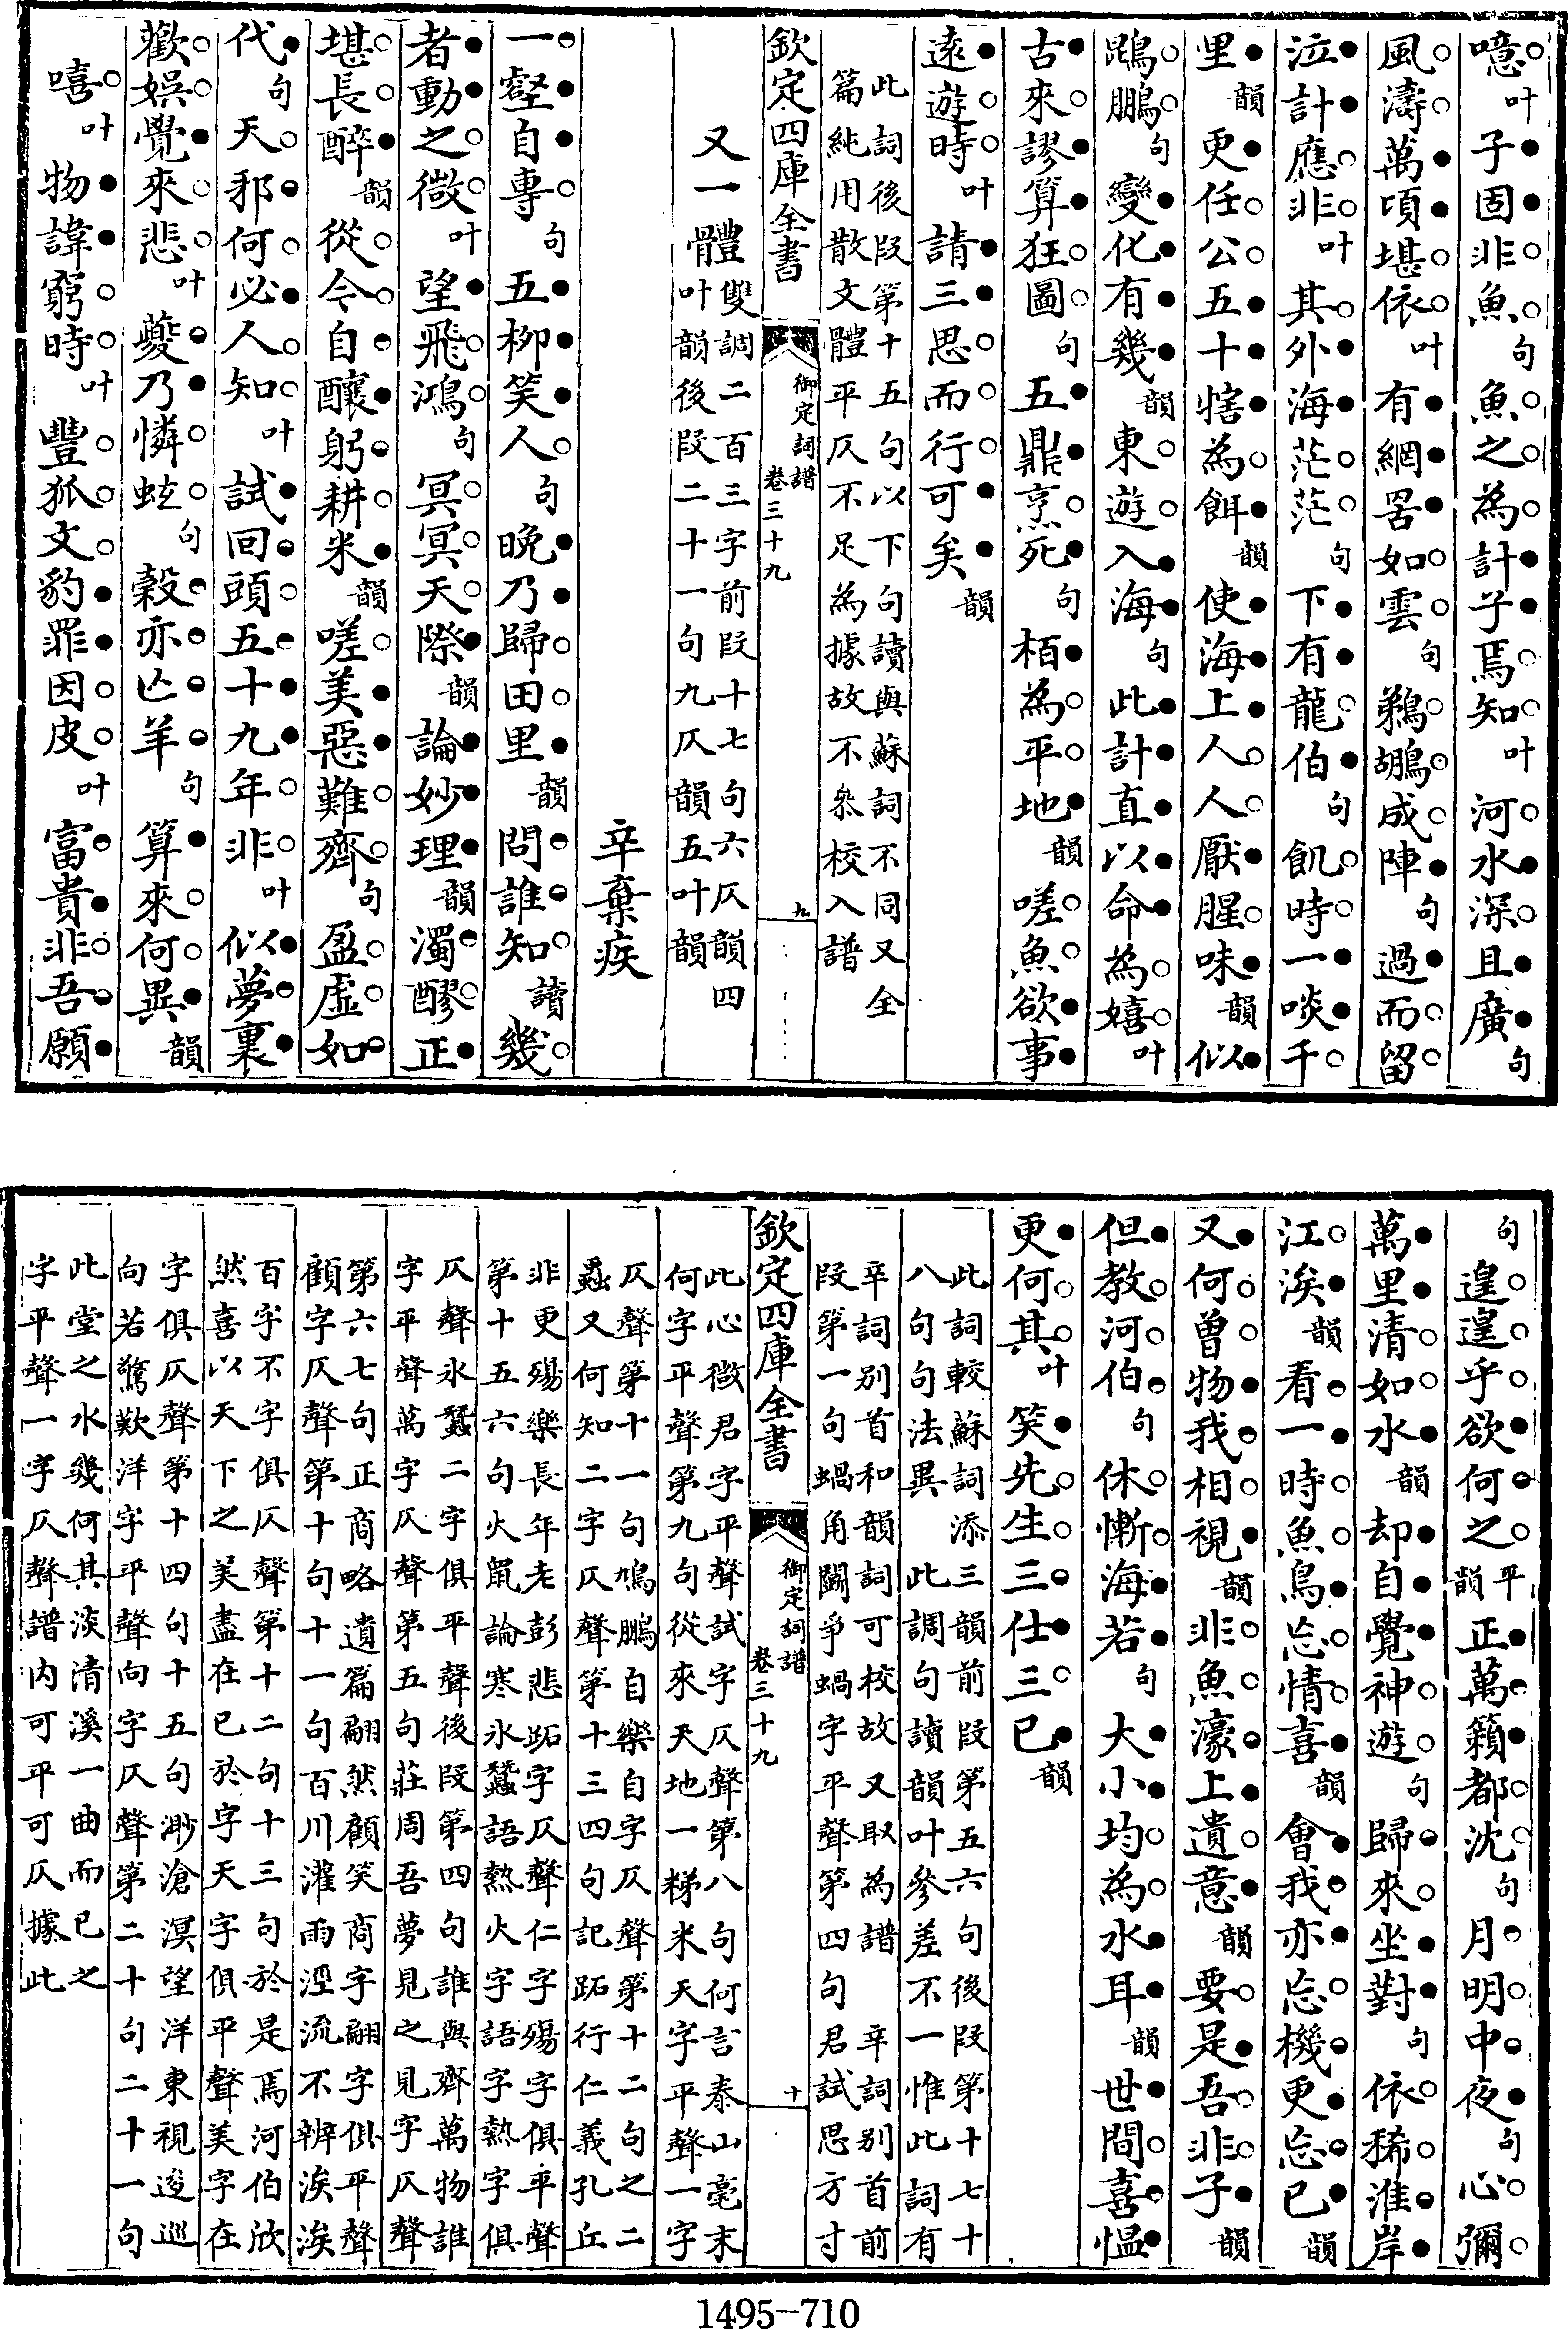 噫叶子固非魚句魚之為計子焉知叶河水深且廣句
風濤萬頃堪依叶有網罟如雲句鵜鶘成陣句過而留
泣計應非叶其外海茫茫句下有龍伯句飢時一啖千
里韻更任公五十犗為餌韻使海上人人厭腥味韻似
鵾鵬句變化有幾韻東遊入海句此計直以命為嬉叶
古來謬算狂圖句五鼎烹死句栢為平地韻嗟魚欲事
遠遊時叶請三思而行可矣韻
此詞後段第十五句以下句讀與蘇詞不同又全
篇純用散文體平仄不足為據故不叅校入譜
欽定四庫全書 御定詞譜 卷三十九 九
又一體 雙調二百三字前段十七句六仄韻四
叶韻後段二十一句九仄韻五叶韻
辛棄疾
一壑自專句五柳笑人句晚乃歸田里韻問誰知讀幾
者動之微叶望飛鴻句冥冥天際韻論妙理韻濁醪正
堪長醉韻從今自釀躬耕米韻嗟美惡難齊句盈虛如
代句天邪何必人知叶試回頭五十九年非叶似夢裏
歡娛覺來悲叶夔乃憐蚿句穀亦亡羊句算來何異韻
嘻叶物諱窮時叶豐狐文豹罪因皮叶富貴非吾願
句遑遑乎欲何之平韻正萬籟都沈句月明中夜句心彌
萬里清如水韻却自覺神遊句歸來坐對句依稀淮岸
江涘韻看一時魚鳥忘情喜韻會我亦忘機更忘已韻
又何曾物我相視韻非魚濠上遺意韻要是吾非子韻
但教河伯句休慚海若句大小均為水耳韻世間喜愠
更何其叶笑先生三仕三已韻
此詞較蘇詞添三韻前段第五六句後段第十七十
八句句法異 此調句讀韻叶參差不一惟此詞有
辛詞別首和韻詞可校故又取為譜 辛詞別首前
段第一句蝸角鬬爭蝸字平聲第四句君試思方寸
欽定四庫全書 御定詞譜 卷三十九 十
此心微君字平聲試字仄聲第八句何言泰山毫末
何字平聲第九句從來天地一稊米天字平聲一字
仄聲第十一句鳩鵬自樂自字仄聲第十二句之二
蟲又何知二字仄聲第十三四句記跖行仁義孔丘
非更殤樂長年老彭悲跖字仄聲仁字殤字俱平聲
第十五六句火鼠論寒氷蠶語熱火字語字熱字俱
仄聲氷蠶二字俱平聲後段第四句誰與齊萬物誰
字平聲萬字仄聲第五句莊周吾夢見之見字仄聲
第六七句正商略遺篇翩然顧笑商字翩字俱平聲
顧字仄聲第十句十一句百川灌雨涇流不辨涘涘
百字不字俱仄聲第十二句十三句於是焉河伯欣
然喜以天下之美盡在已於字天字俱平聲美字在
字俱仄聲第十四句十五句渺滄溟望洋東視逡巡
向若驚歎洋字平聲向字仄聲第二十句二十一句
此堂之水幾何其淡清溪一曲而已之
字平聲一字仄聲譜内可平可仄據此
1495-710